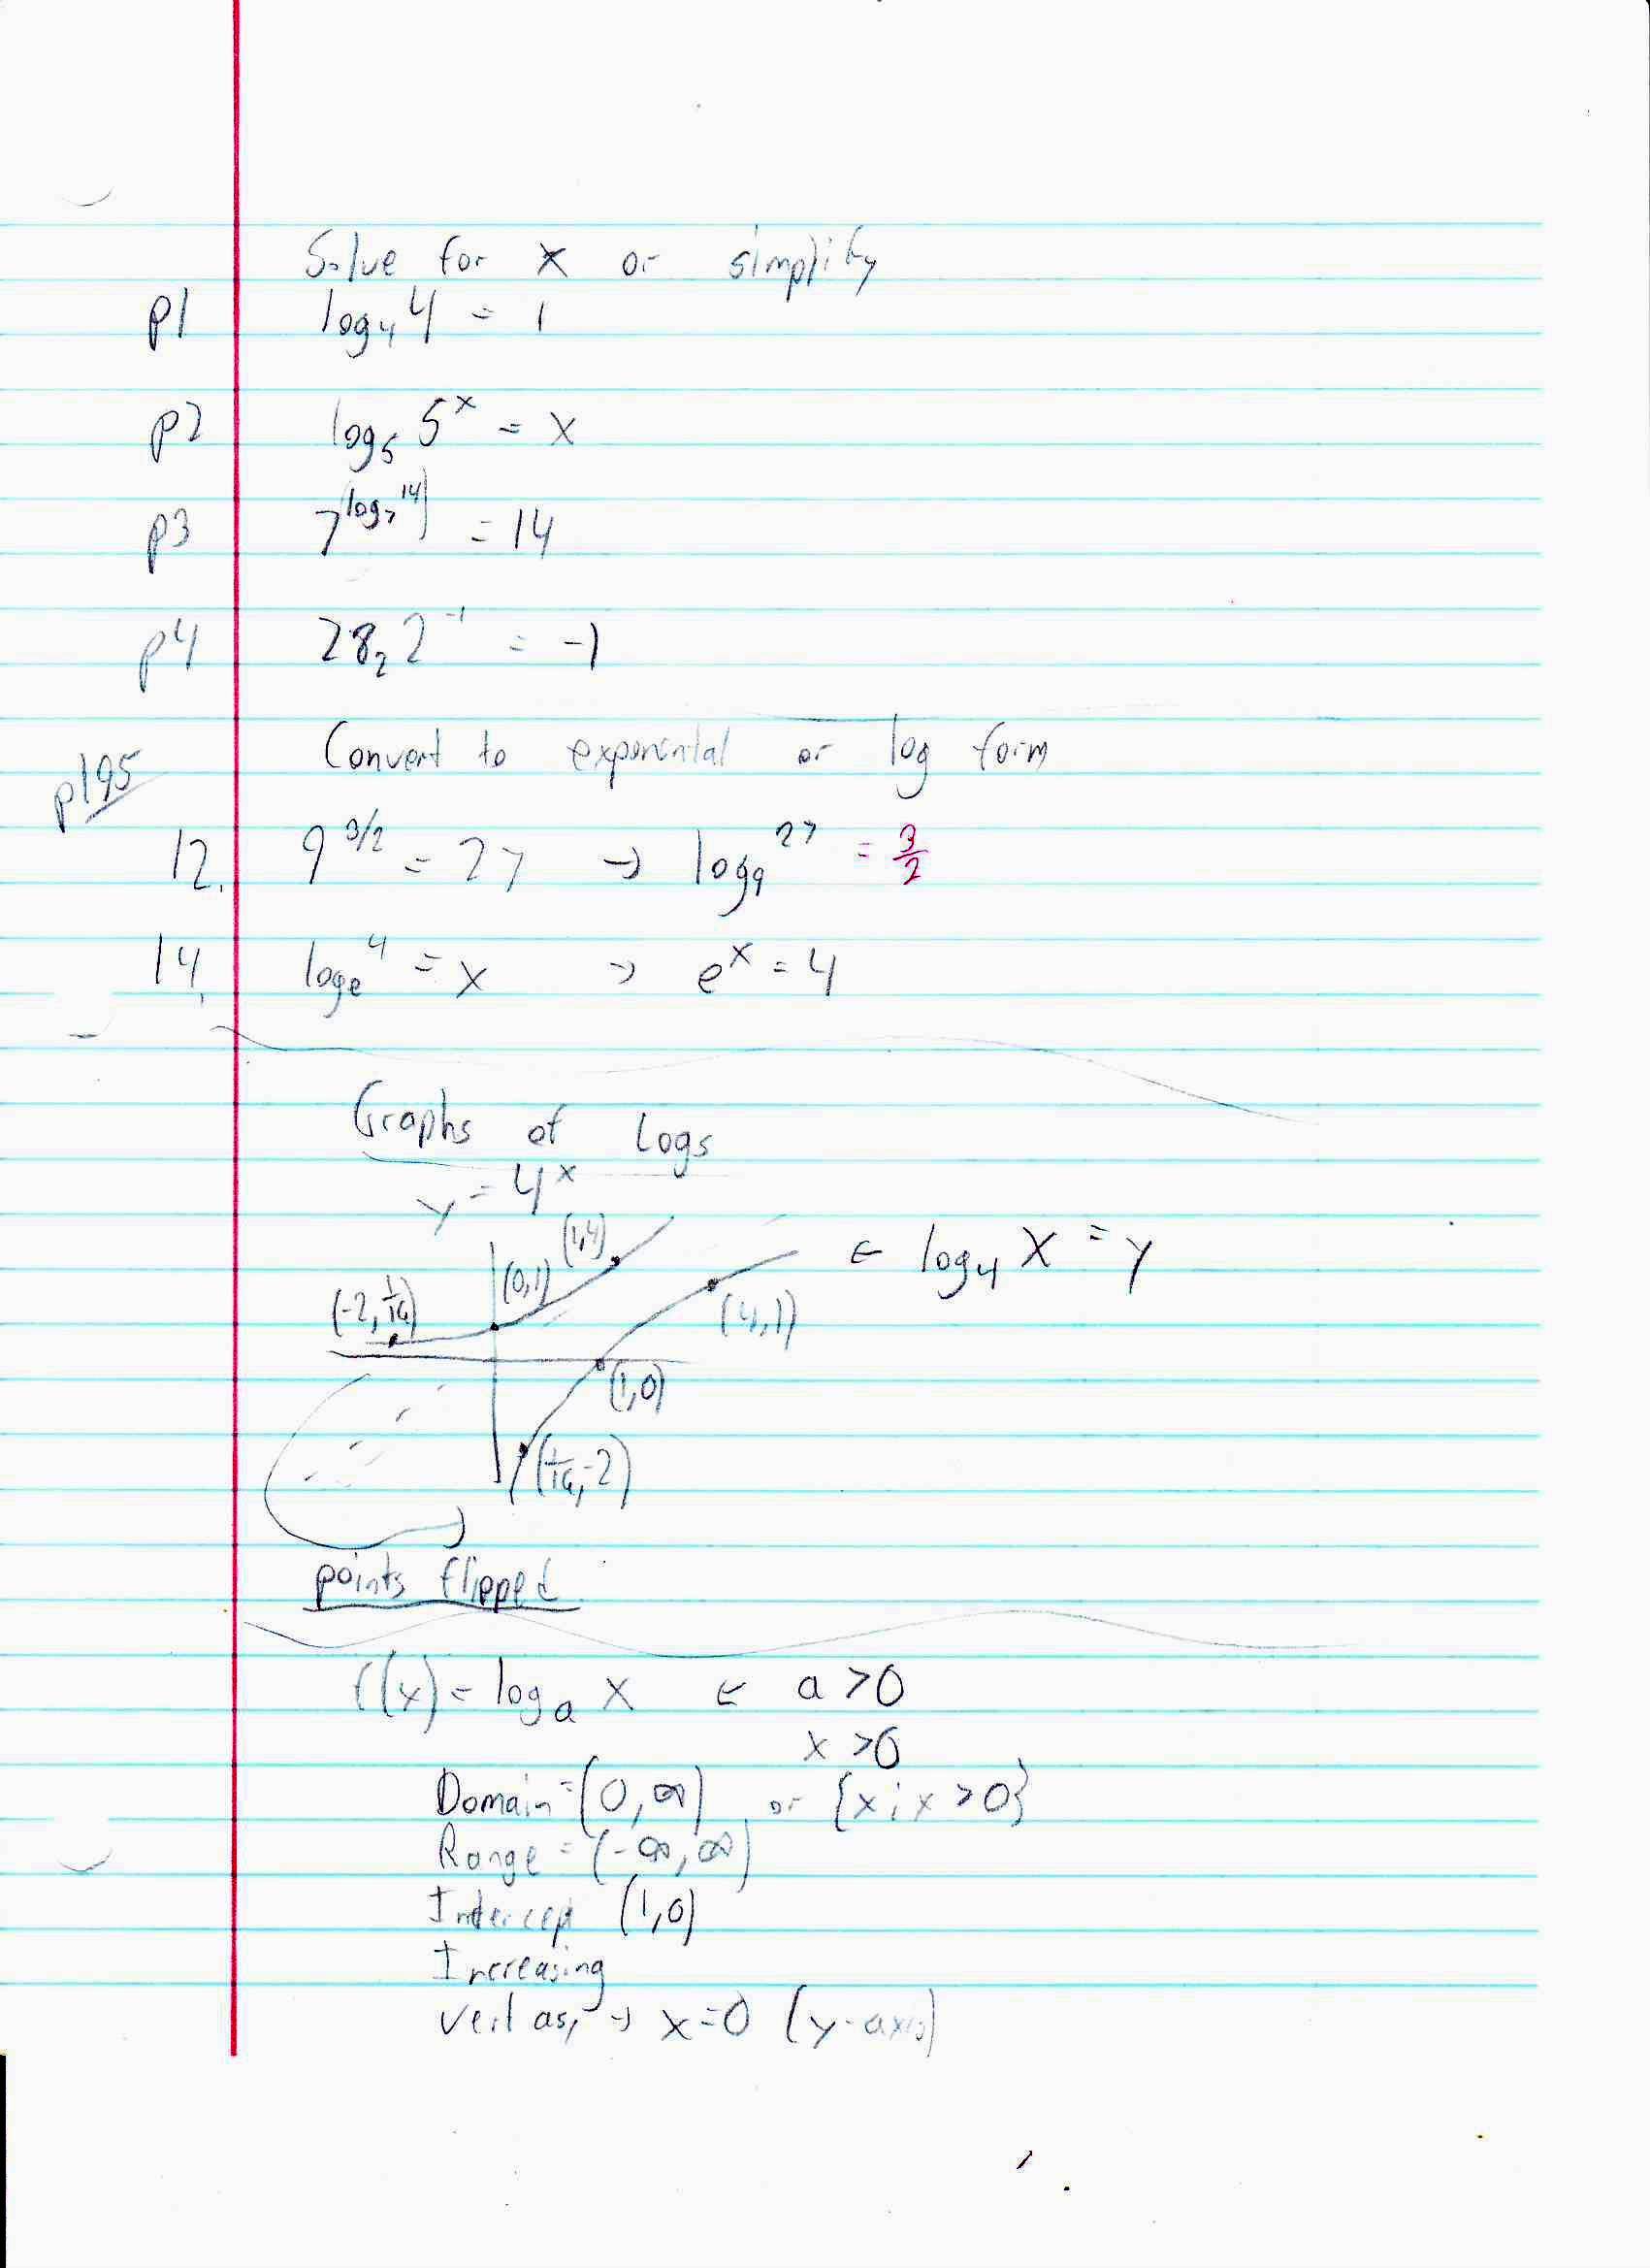 Solve for x or simplify
p1 log₄ 4 = 1
p2 log₅ 5ˣ = x
p3 7^(log₇ 14) = 14
p4 28₂ 2⁻¹ = -1
Convert to exponential or log form
p195
12. 9^3/2 = 27 → log₉ 27 = 3/2
14. logₑ 4 = x → eˣ = 4
Graphs of Logs
y = 4ˣ
(1,4)
← log₄ x = y
(0,1)
(-2, 1/16)
(4,1)
(1,0)
(1/16, -2)
points flipped
f(x) = logₐ x ← a > 0
x > 0
Domain = (0, ∞) or {x; x > 0}
Range = (-∞, ∞)
Intercept (1,0)
Increasing
Vert as, → x = 0 (y-axis)